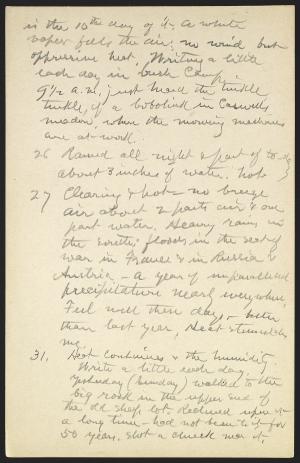 is the 10th day of it. A white
vapor fills the air; no wind but
oppressive heat. Writing a little
each day in bush Camp.
9½ a.m. just heard the tinkle
tinkle, of a bobolink in Caswells
meadow, where the mowing machines
are at work.
26 Rained all night & part of to-day
about 3 inches of water. hot
27 Clearing & hot - no breeze
air about 2 parts air & one
part water. Heavy rains in
the South; floods in the seat of
war in France & in Russia &
Austria - A year of unparalleled
precipitation nearly everywhere.
Feel well these days, - better
than last year, Heat stimulates
me,
31, Heat continues & the humidity
Write a little each day.
Yesterday (Sunday) walked to the
big rock in the upper end of
the old sheep lot. Reclined upon it
a long time - had not been to it for
50 years. Shot a chuck near it.